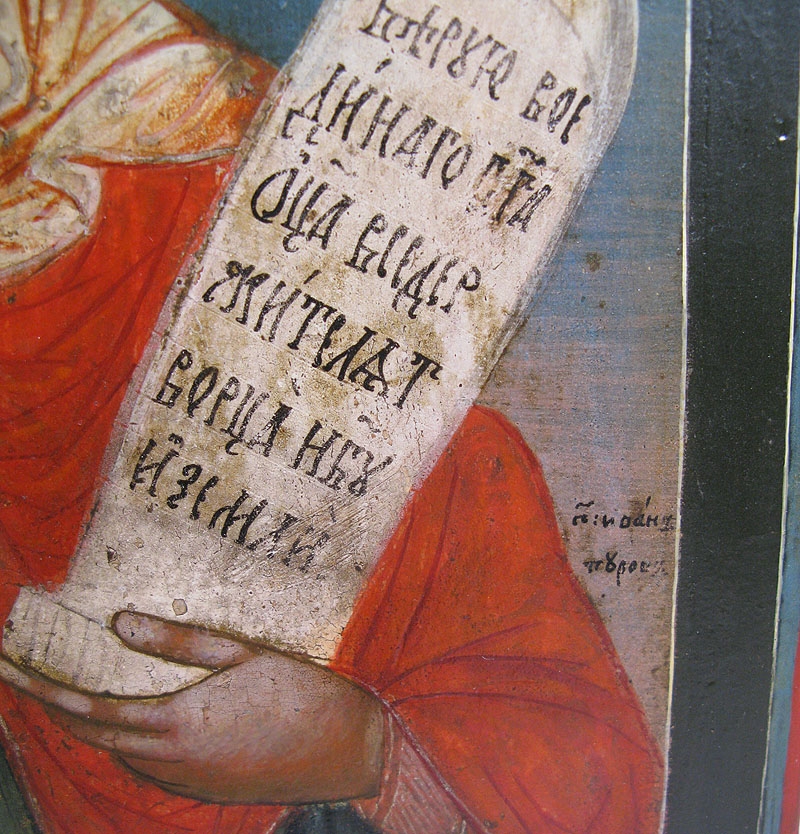 вѣрꙋю вое
ди́наго бг҃а
оц҃а вседер
жи́телѧт
ворца̀ нб҃ꙋ
и҆земли̇